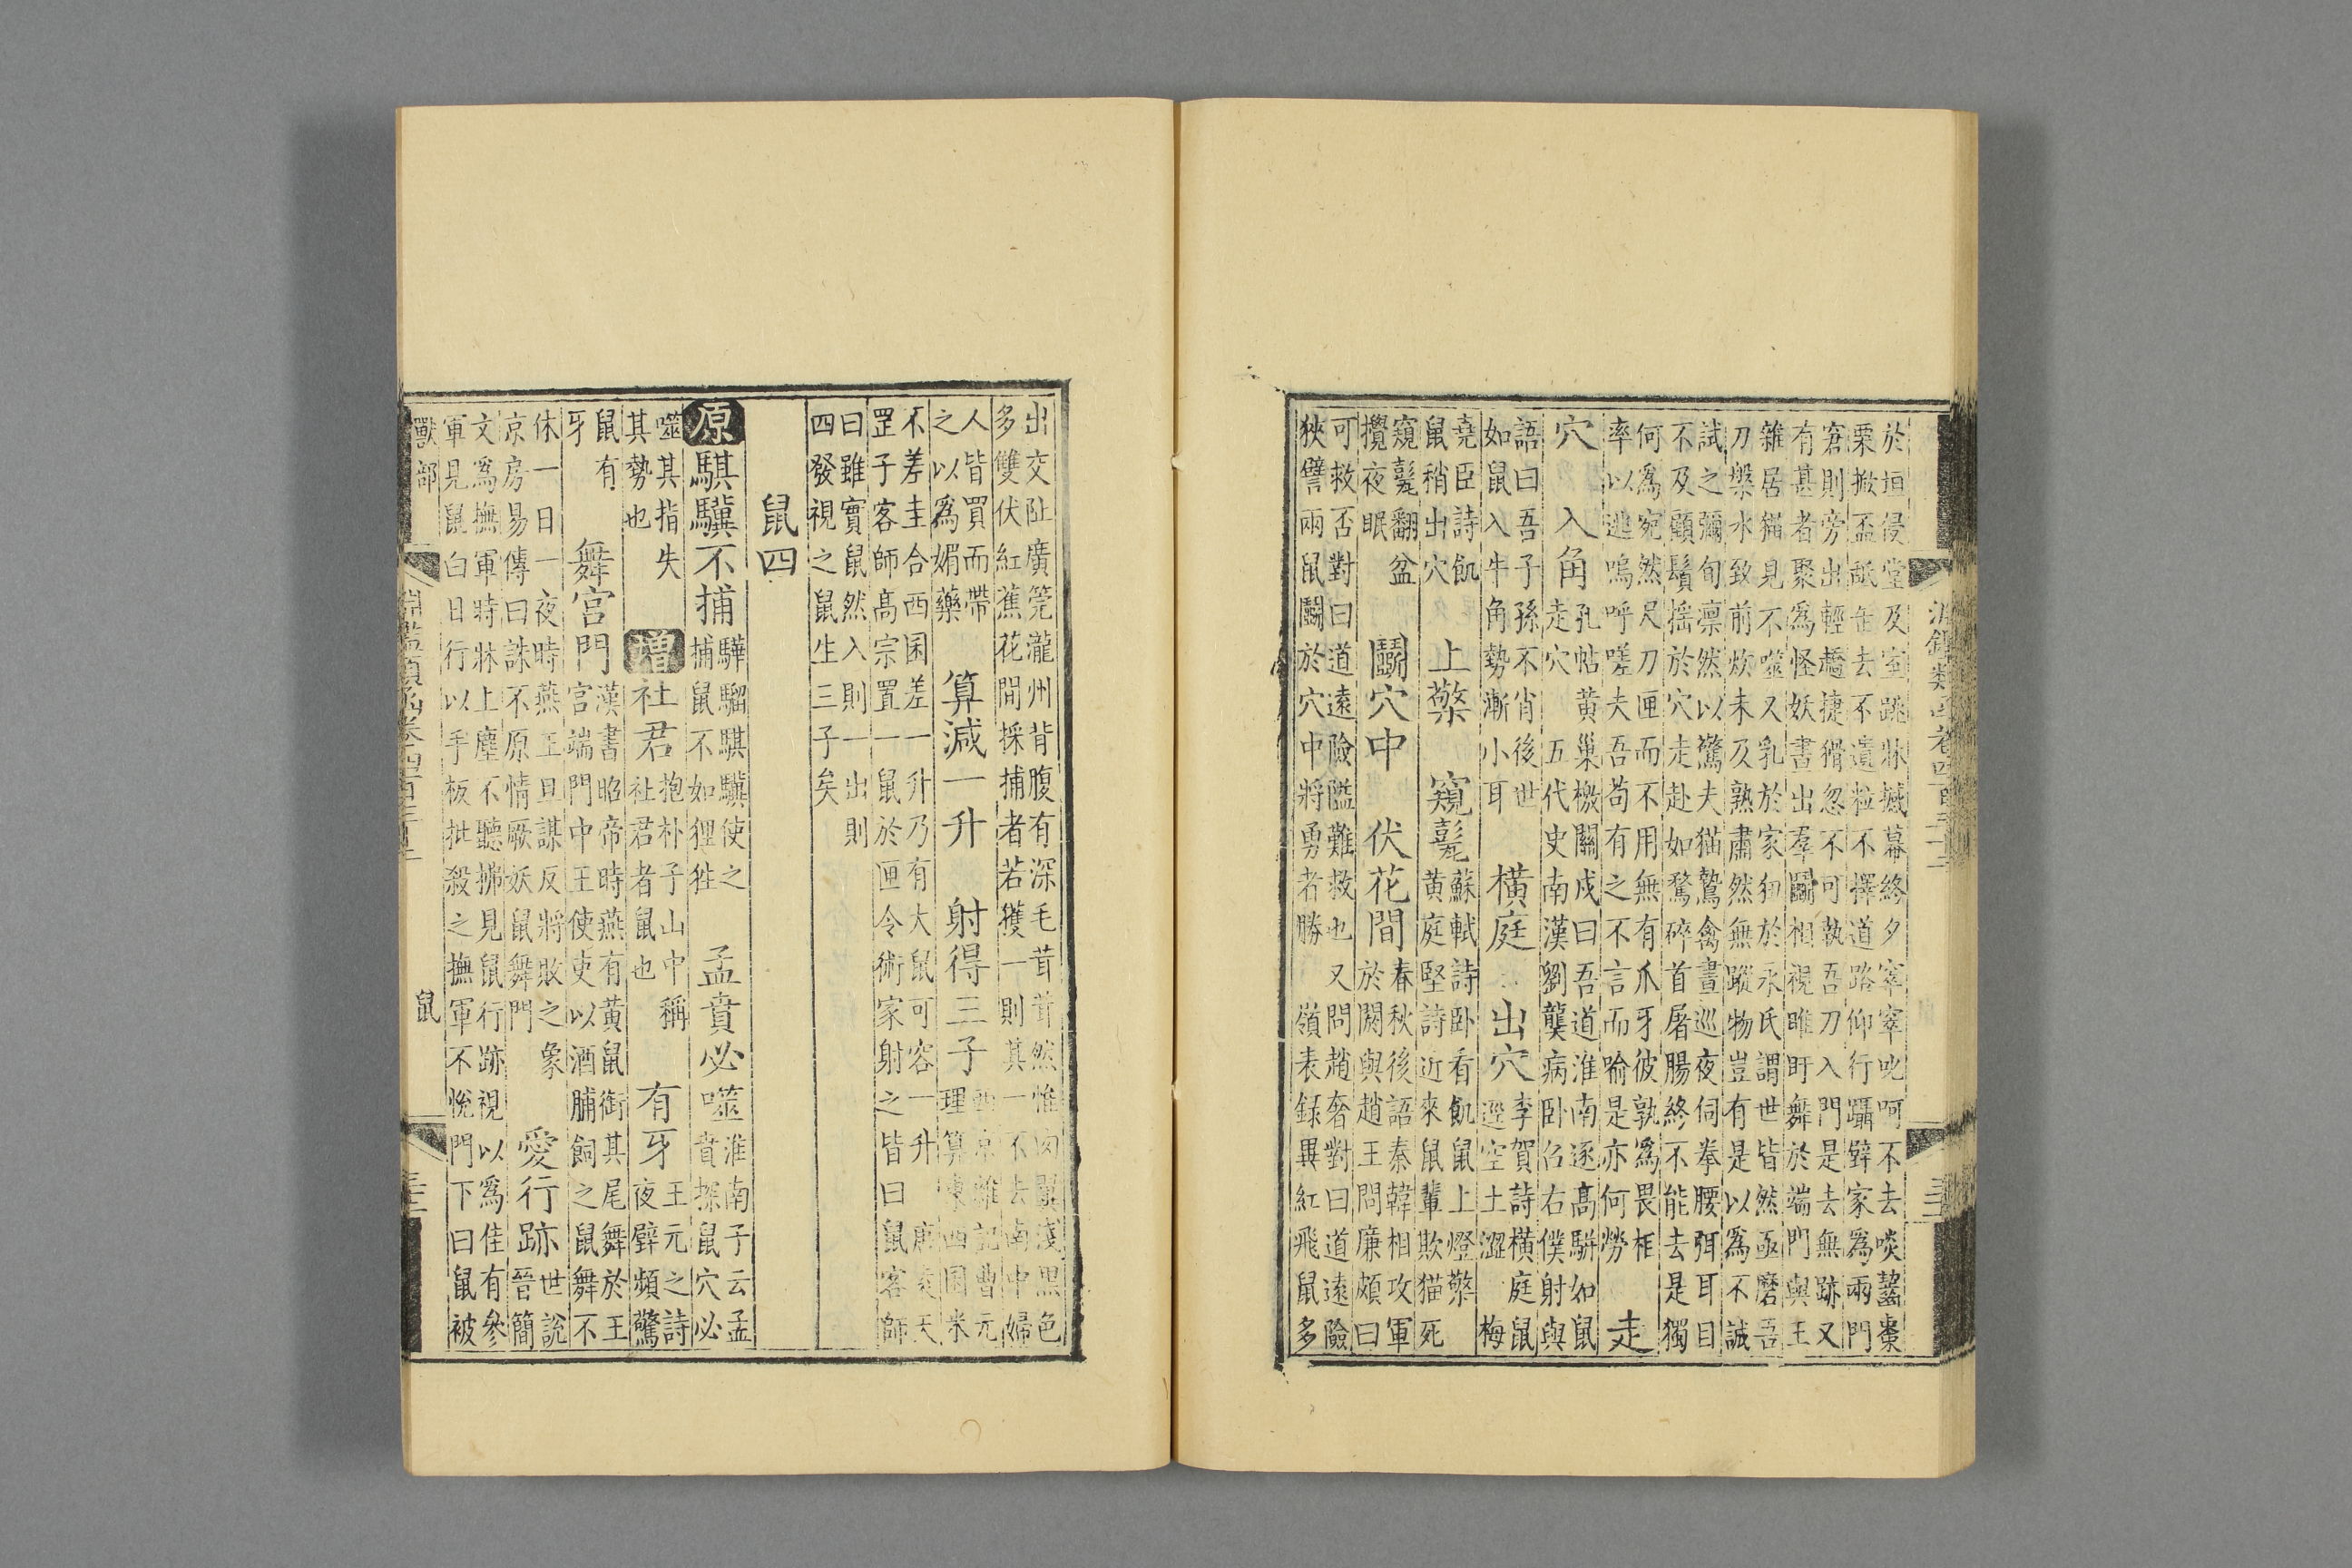 於垣侵堂及室跳牀撼幕終夕窣窣叱呵不去啖齧棗
栗掀盃舐缶去不遺粒不擇道路仰行躡壁家爲兩門
窘則旁出輕趫捷猾忽不可執吾刀入門是去無跡又
有甚者聚爲怪妖晝出羣鬭相視睢盱舞於端門與王
雜居猫見不噬又乳於家狃於永氏謂世皆然亟磨吾
刀槃水致前炊未及熟肅然無蹤物豈有是以爲不誠
試之彌旬凛然以驚夫猫鷙禽晝巡夜伺拳腰弭耳目
不及顧鬚搖於穴走赴如鶩碎首屠腸終不能去是獨
何爲宛然尺刀匣而不用無有爪牙彼孰爲畏相
率以逃嗚呼嗟夫吾苟有之不言而喻是亦何勞
走
穴入角
孔帖黄巢檄關戍曰吾道淮南逐高駢如鼠
走穴　五代史南漢劉龑病卧召右僕射與
語曰吾子孫不肖後世
如鼠入牛角勢漸小耳
橫庭　出穴
李賀詩橫庭鼠
逕空土澀　梅
堯臣詩飢
鼠稍出穴
上檠　窺甏
蘇軾詩卧看飢鼠上燈檠
黄庭堅詩近來鼠輩欺猫死
窺甏翻盆
攪夜眠
鬭穴中　伏花間
春秋後語秦韓相攻軍
於閼與趙王問廉頗曰
可救否對曰道遠險隘難救也　又問趙奢對曰道遠險
狹譬兩鼠鬭於穴中將勇者勝　嶺表録異紅飛鼠多
出交阯廣筦瀧州背腹有深毛茸茸然惟肉翼淺黑色
多雙伏紅蕉花間採捕者若獲一則其一不去南中婦
人皆買而帶
之以爲媚藥
算減一升　射得三子
西京雜記曹元
理算東西囷米
不差圭合西囷差一升乃有大鼠可容一升
罡子客師高宗置一鼠於匣令術家射之皆曰鼠客師
曰雖實鼠然入則一出則
四發視之鼠生三子矣
鼠四
原騏驥不捕
驊騮騏驥使之
捕鼠不如狸狌
孟賁必噬
淮南子云孟
賁探鼠穴必
噬其指失
其勢也
增社君
抱朴子山中稱
社君者鼠也
有牙
王元之詩
夜壁頻驚
鼠有
牙
舞宮門
漢書昭帝時燕有黄鼠銜其尾舞於王
宮端門中王使吏以酒脯飼之鼠舞不
休一日一夜時燕王旦謀反將敗之象
京房易傳曰誅不原情厥妖鼠舞門
愛行跡
世說
晉簡
文爲撫軍時牀上塵不聽拂見鼠行跡視以爲佳有參
軍見鼠白日行以手板批殺之撫軍不悅門下曰鼠被
獸部
淵鑑類函卷四百三十二
鼠